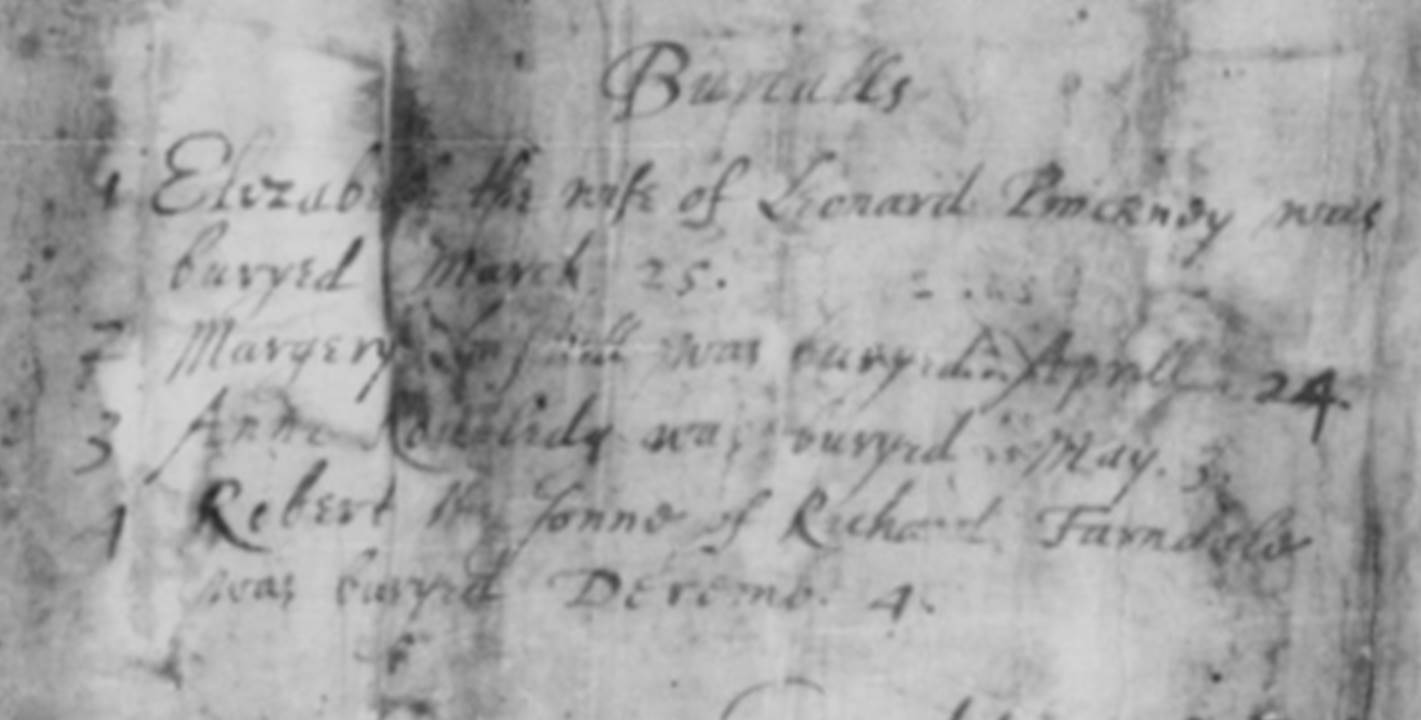 Burialls
1 Elizabeth the wife of Leonard Pinckney was
buryed March 25.
2 Margery was buryed in Aprill 24.
3 Anne was buryed in May. 3.
4 Robert the sonne of Richard Farndale
was buryed Decemb. 4.